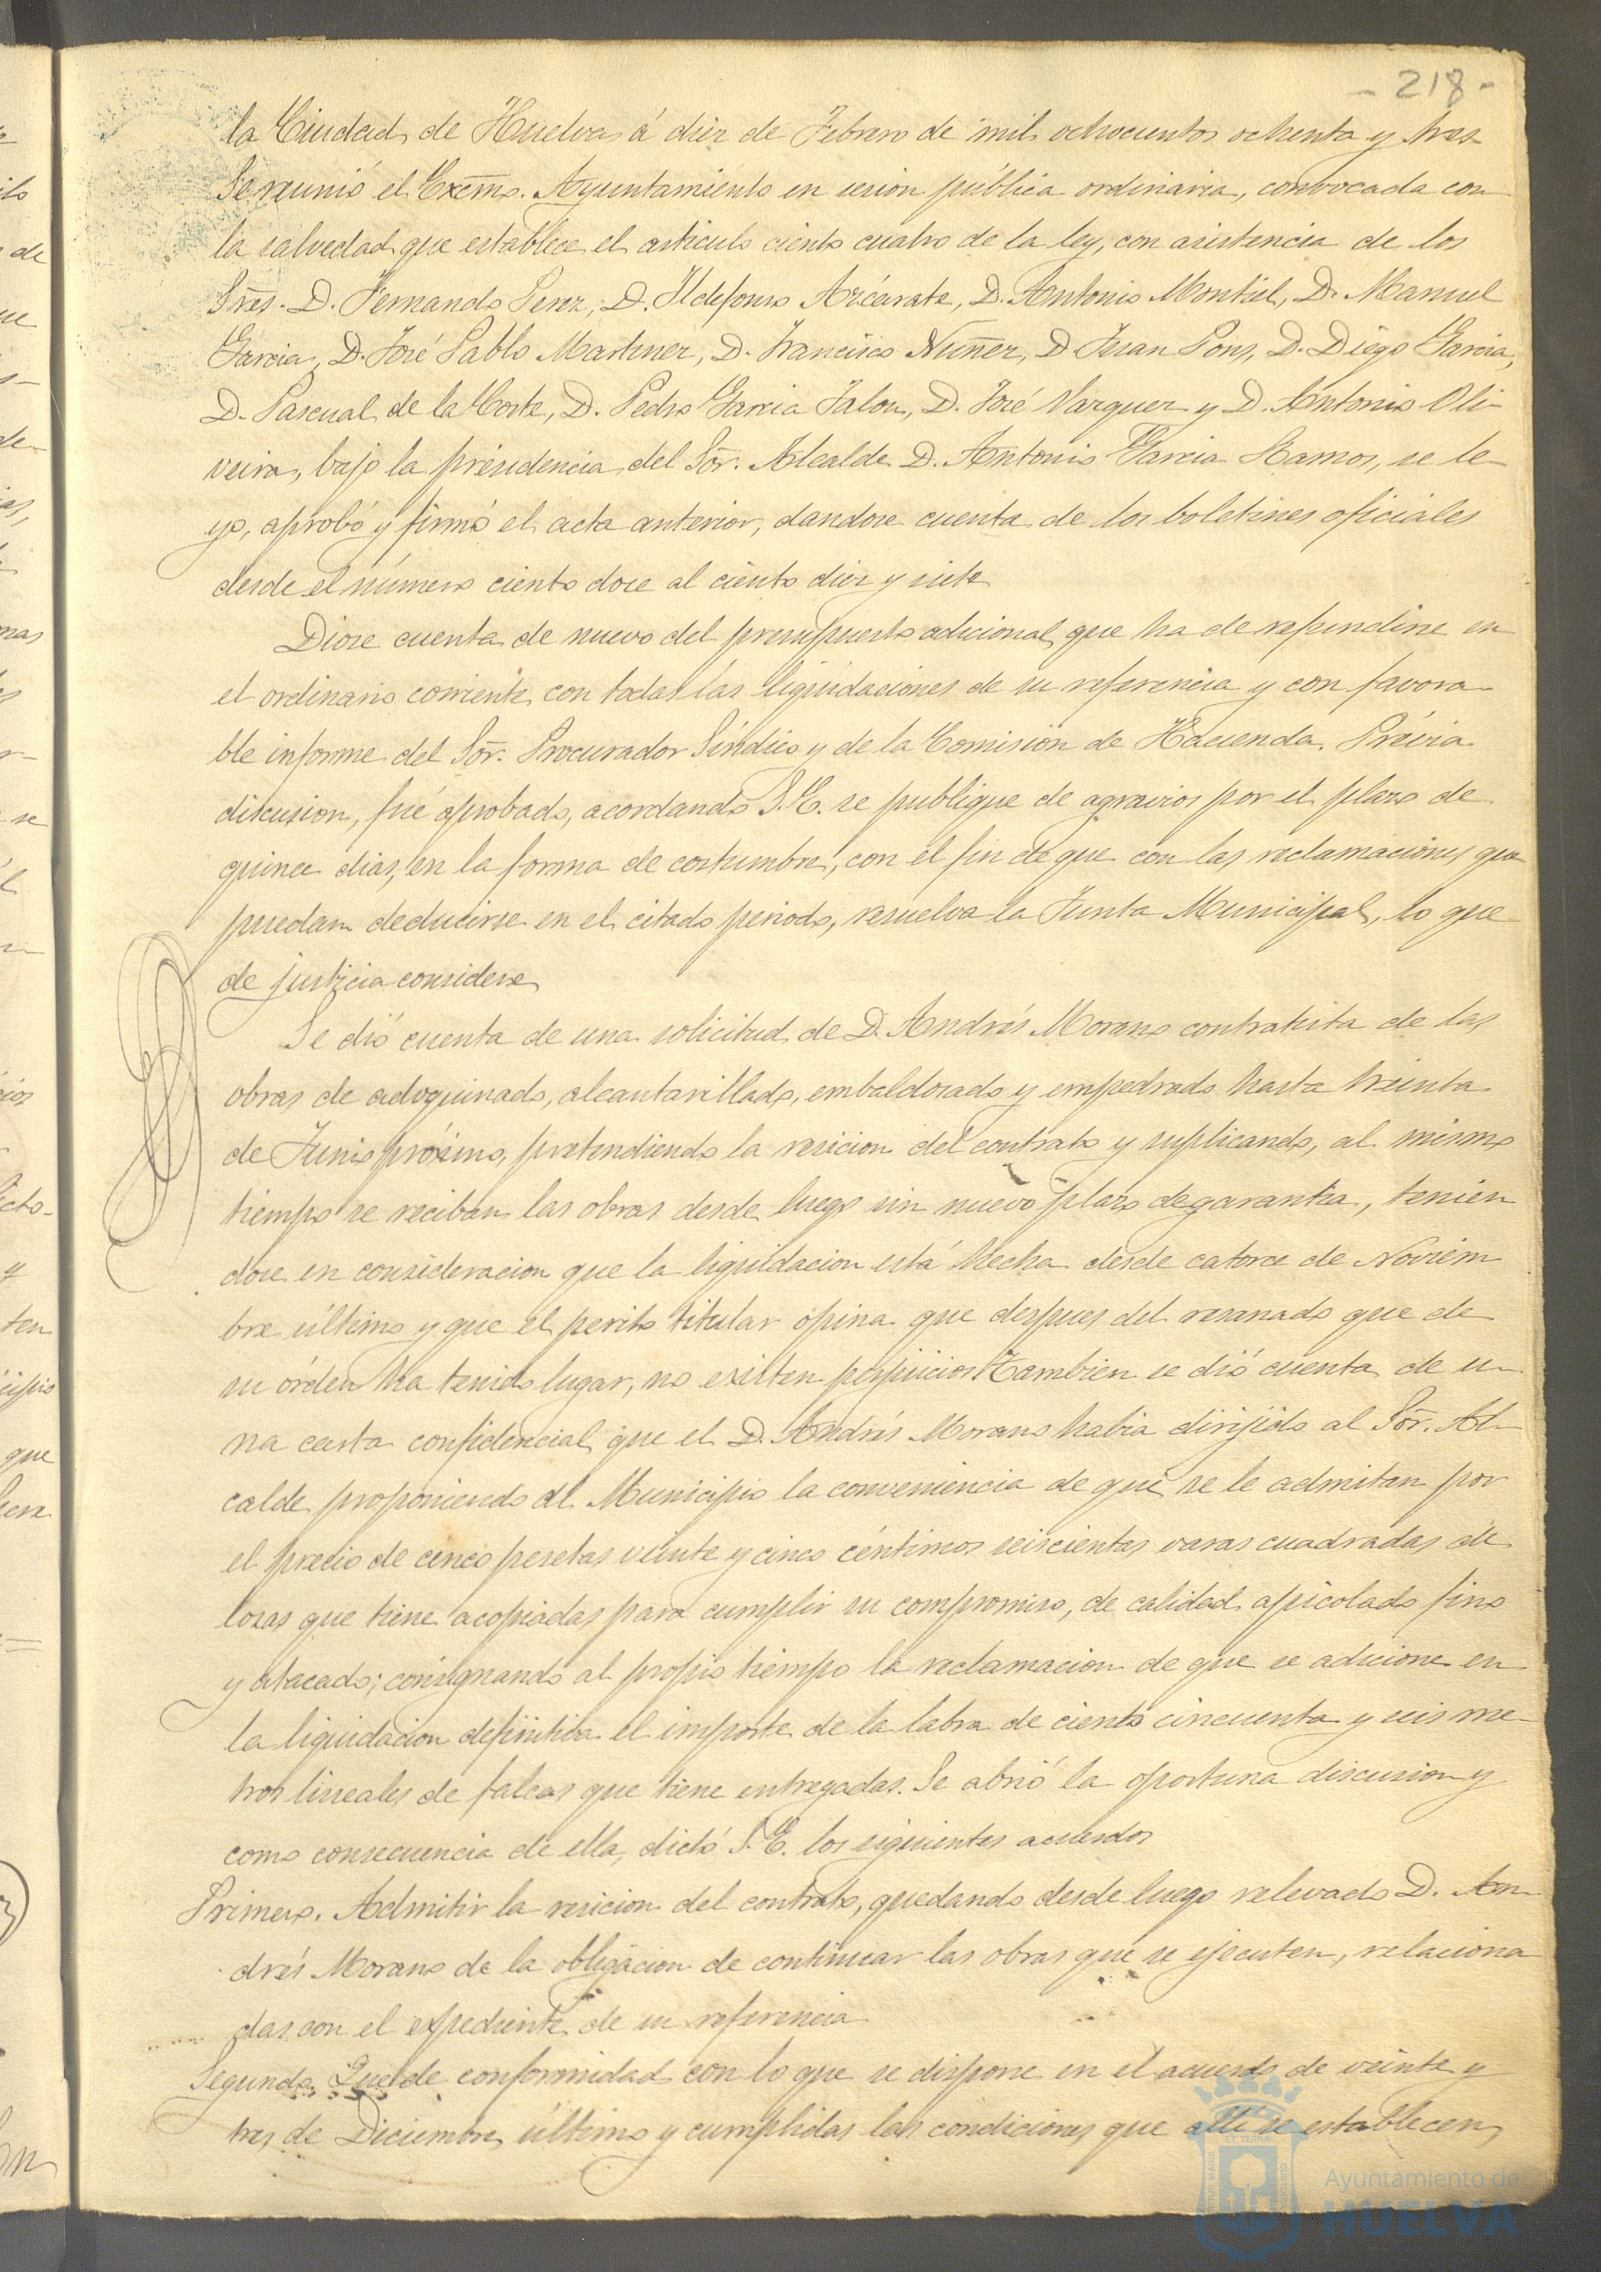 - 218 -
la Ciudad de Huelva á diez de Febrero de mil ochocientos ochenta y tres
Se reunió el Excmo. Ayuntamiento en sesion pública ordinaria, convocada con
la salvedad que establece el artículo ciento cuatro de la ley, con asistencia de los
Sres. D. Fernando Perez, D. Ildefonso Azcárate, D. Antonio Montiel, D. Manuel
Garcia, D. José Pablo Martinez, D. Francisco Nuñez, D. Juan Pons, D. Diego Garcia,
D. Pascual de la Corte, D. Pedro Garcia Jalon, D. José Vazquez y D. Antonio Oli-
veira, bajo la presidencia del Sor. Alcalde D. Antonio Garcia Ramos, se le-
yo, aprobó y firmó el acta anterior, dandose cuenta de los boletines oficiales
desde el número ciento doce al ciento diez y siete
Diose cuenta de nuevo del presupuesto adicional que ha de refundirse en
el ordinario corriente con todas las liquidaciones de su referencia y con favora-
ble informe del Sor. Procurador Síndico y de la Comision de Hacienda. Prévia
discusion, fué aprobado, acordando S.E. se publique de agravios por el plazo de
quince dias, en la forma de costumbre, con el fin de que con las reclamaciones que
puedan deducirse en el citado periodo, resuelva la Junta Municipal, lo que
de justicia considere
Se dió cuenta de una solicitud de D. Andrés Morano contratista de las
obras de adoquinado, alcantarillado, embaldosado y empedrado hasta treinta
de Junio próximo, pretendiendo la resicion del contrato y suplicando, al mismo
tiempo se reciban las obras desde luego sin nuevo plazo de garantia, tenien
dose en consideracion que la liquidacion está hecha desde catorce de Noviem
bre último y que el perito titular opina que despues del resanado que de
su órden ha tenido lugar, no existen perjuicios Tambien se dió cuenta de u-
na carta confidencial que el D. Andrés Morano habia dirijido al Sor. Al-
calde proponiendo al Municipio la conveniencia de que se le admitan por
el precio de cinco pesetas veinte y cinco céntimos seiscientas varas cuadradas de
losas que tiene acopiadas para cumplir su compromiso, de calidad apicolado fino
y atacado; consignando al propio tiempo la reclamacion de que se adicione en
la liquidacion definitiva el importe de la labra de ciento cincuenta y seis me-
tros lineales de falcas que tiene entregadas. Se abrió la oportuna discusion y
como consecuencia de ella, dictó S.E. los siguientes acuerdos
Primero. Admitir la resicion del contrato, quedando desde luego relevado D. An-
drés Morano de la obligacion de continuar las obras que se ejecuten, relaciona
das con el expediente de su referencia
Segundo. Que de conformidad con lo que se dispone en el acuerdo de veinte y
tres de Diciembre último y cumplidas las condiciones que alli se establecen,
Ayuntamiento de
HUELVA